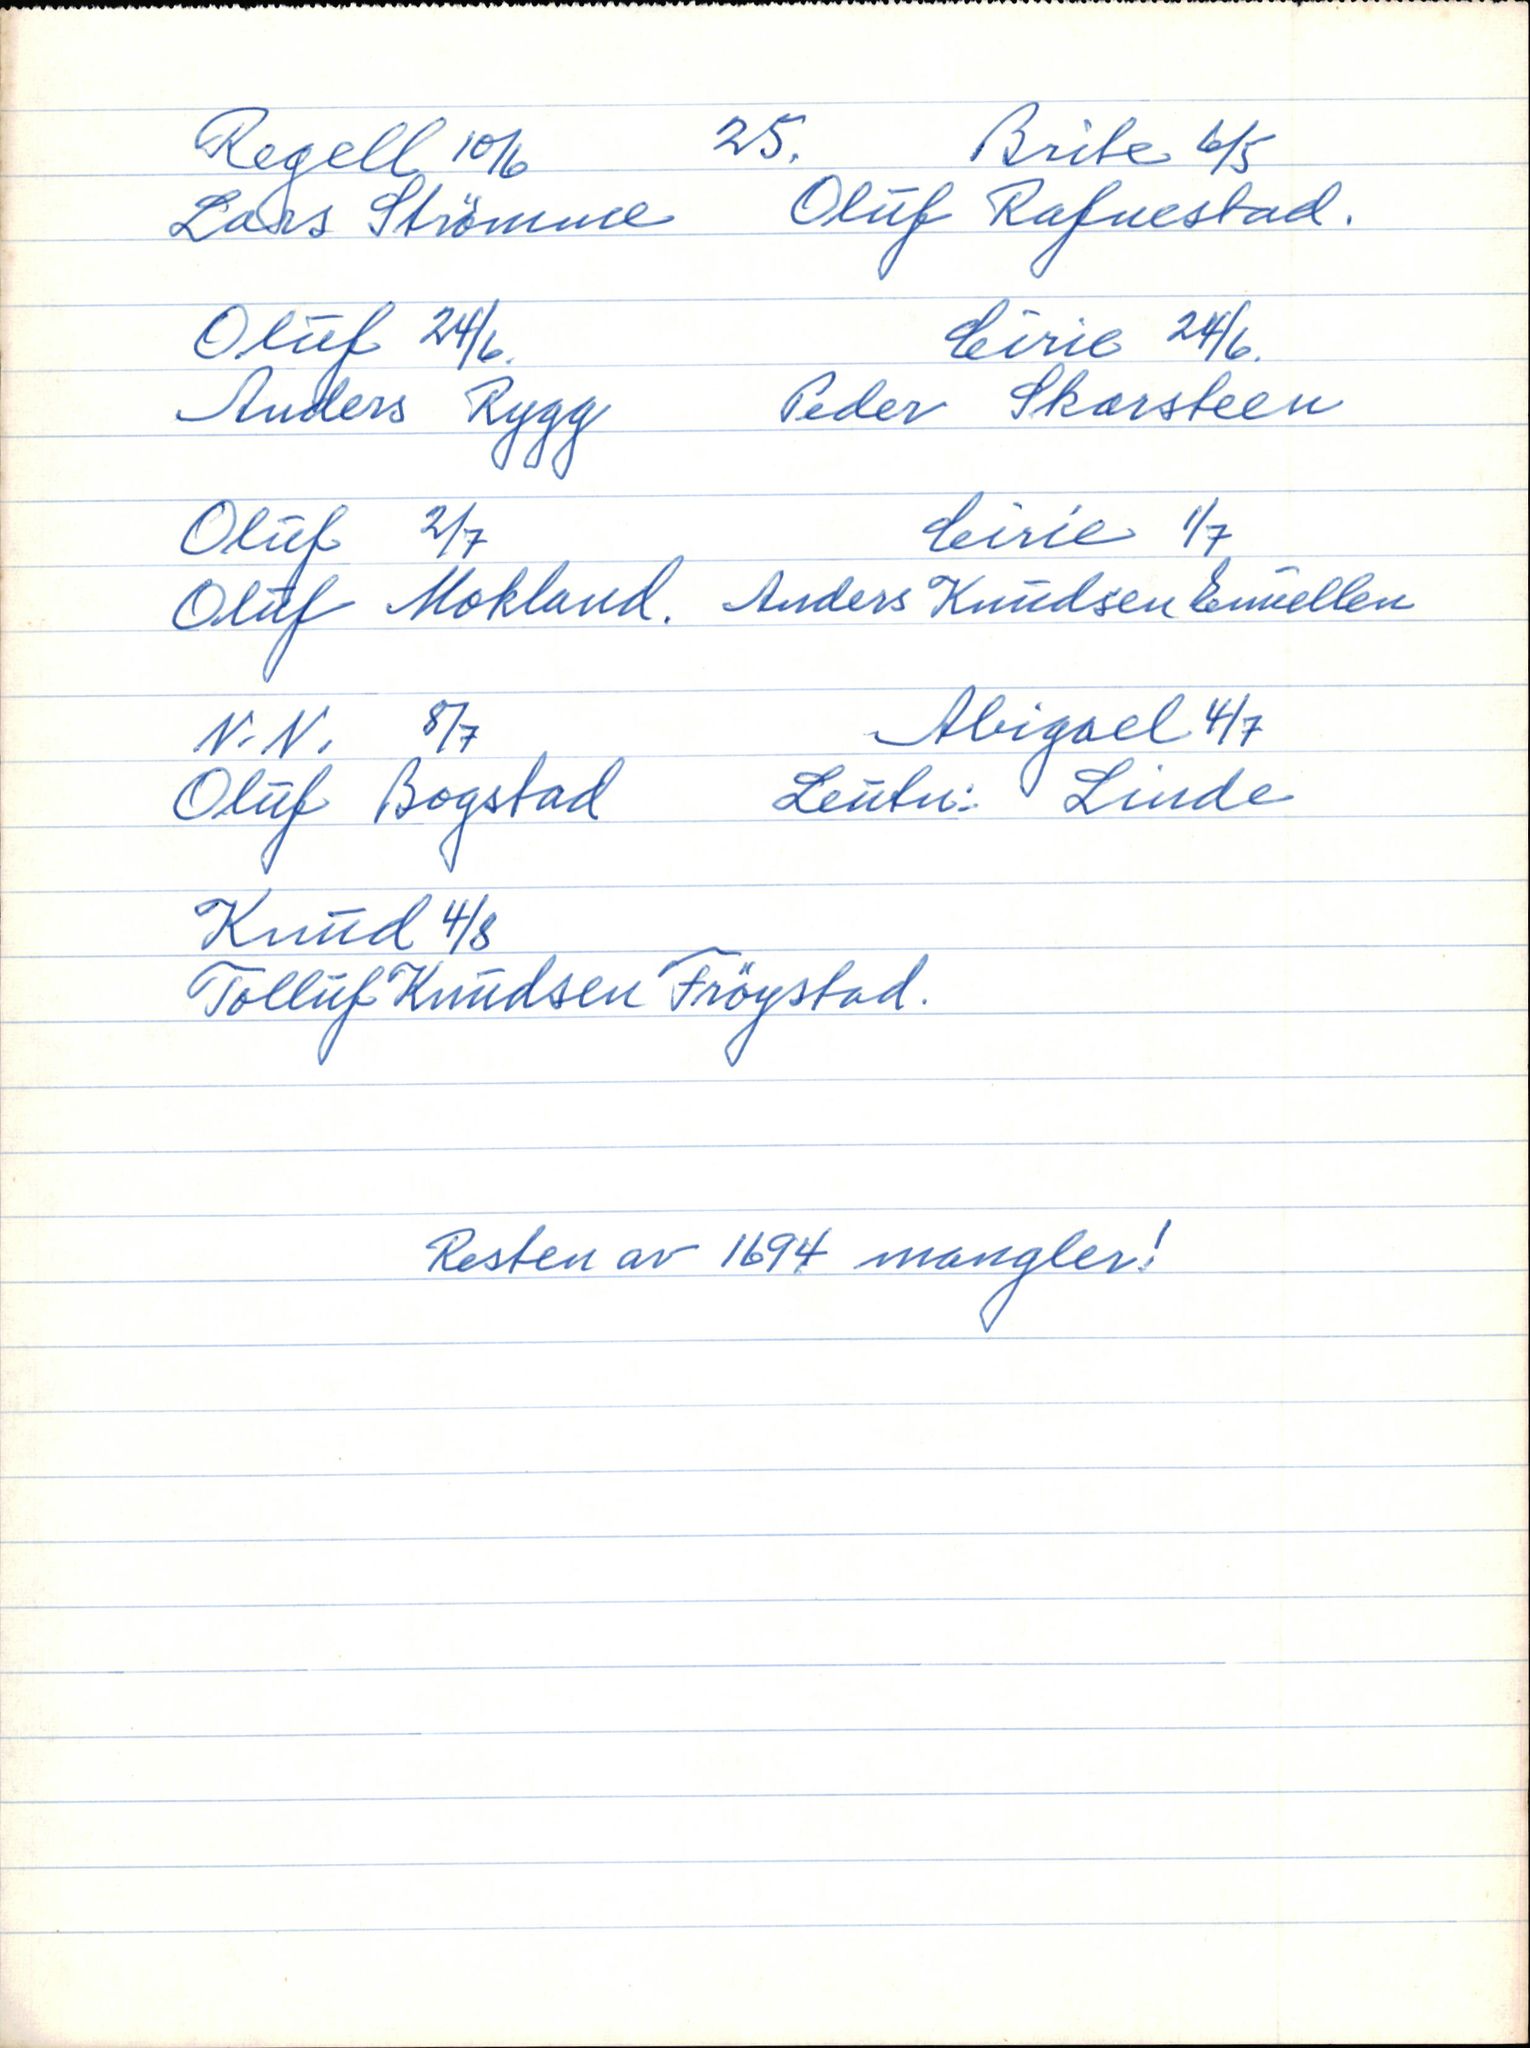 Regell 10/6 25. Brite 6/5
Lars Strömme Oluf Rafnestad.
Oluf 24/6. Eirie 24/6.
Anders Rygg Peder Skarsteen
Oluf 2/7 Eirie 1/7
Oluf Mokland. Anders Knudsen
N. N. 8/7 Abigael 4/7
Oluf Bogstad Leutn: Linde
Knud 4/8
Tolluf Knudsen Fröystad.
Resten av 1694 mangler!